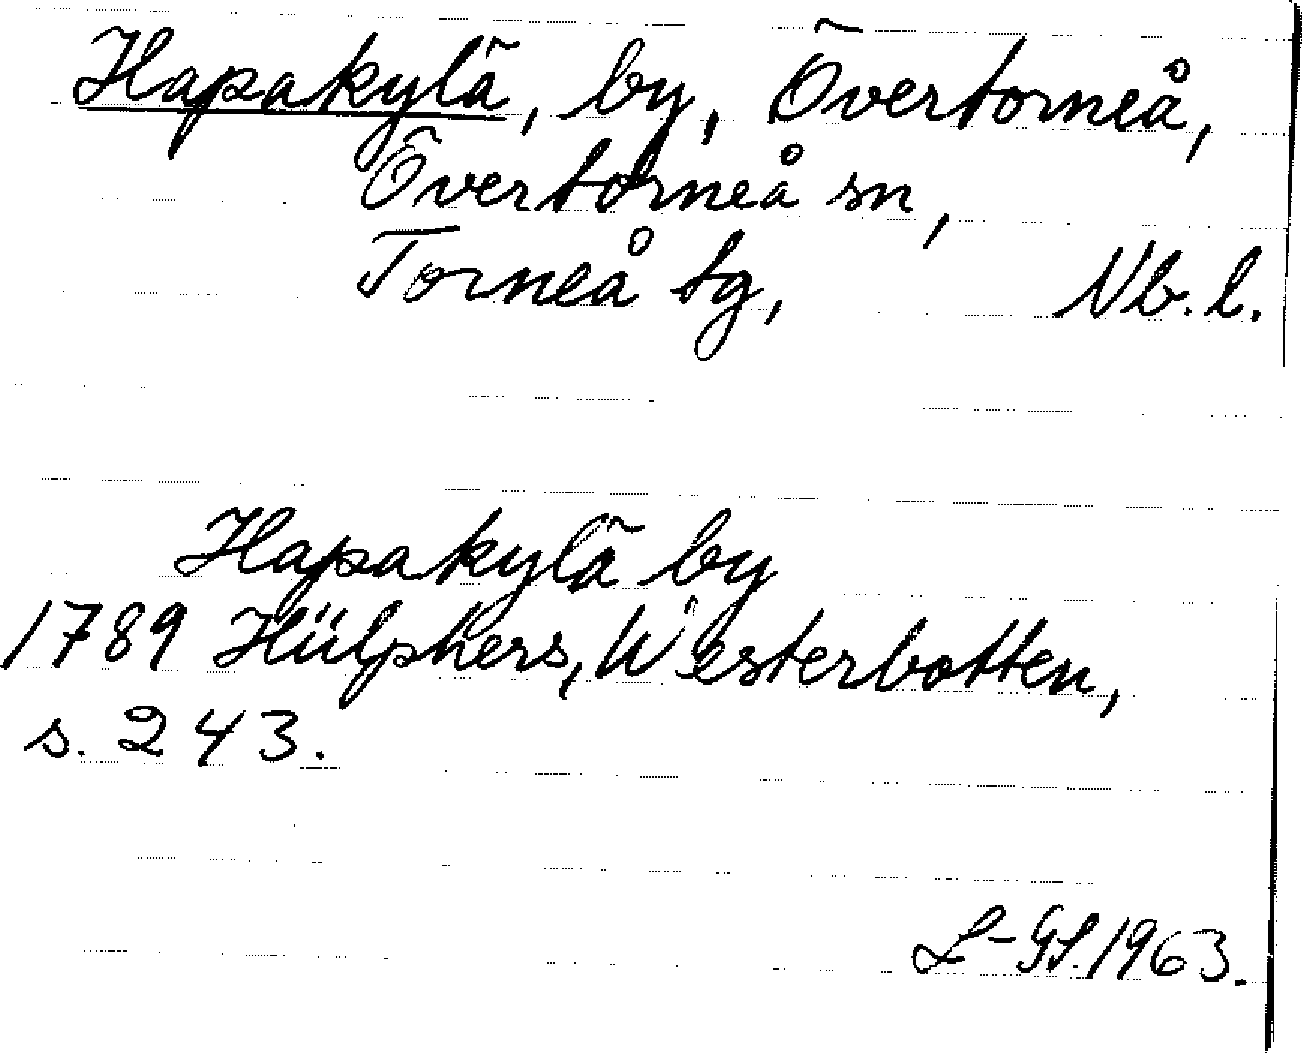 Hapakylä, by, Övertorneå,
Övertorneå sn,
Torneå tg, Nb. l.
Hapakylä by
1789 Hülphers, Westerbotten,
s. 243.
L-GS. 1963.